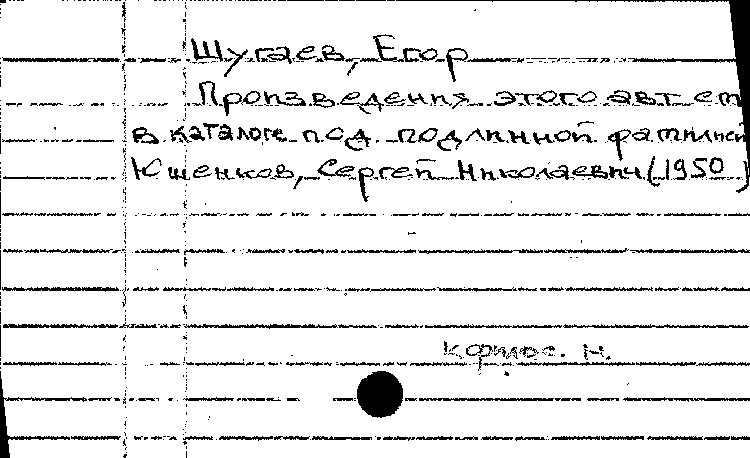 Шугаев, Егор
Произведения этого авт см
в каталоге под подлинной фамилией
Юшенков, Сергей Николаевич (1950)